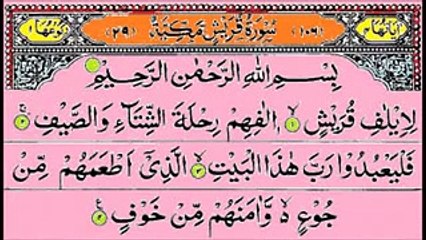 اٰیاتُهَا ۴ (۱۰۶) سُوْرَةُ قُرَيْشٍ مَكِّيَّةٌ (۲۹) رُكُوْعُهَا ۱
بِسْمِ اللهِ الرَّحْمٰنِ الرَّحِيْمِ
لِاِيْلٰفِ قُرَيْشٍ ۙ۱ اٖلٰفِهِمْ رِحْلَةَ الشِّتَآءِ وَالصَّيْفِ ۚ۲
فَلْيَعْبُدُوْا رَبَّ هٰذَا الْبَيْتِ ۙ۳ الَّذِيْٓ اَطْعَمَهُمْ مِّنْ
جُوْعٍ ۙ۬ وَّاٰمَنَهُمْ مِّنْ خَوْفٍ ۴